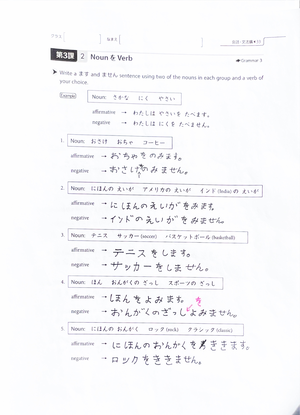 クラス
なまえ
会話・文法編 p.
第3課 2 Noun を Verb
Grammar 3
Write a ます and ません sentence using two of the nouns in each group and a verb of
your choice.
Example Noun: さかな にく やさい
affirmative → わたしは やさいを たべます。
negative → わたしは にくを たべません。
1. Noun: おさけ おちゃ コーヒー
affirmative → おちゃをのみます。
negative → おさけをのみません。
2. Noun: にほんの えいが アメリカの えいが インド (India) の えいが
affirmative → にほんのえいがをみます。
negative → インドのえいがをみません。
3. Noun: テニス サッカー (soccer) バスケットボール (basketball)
affirmative → テニスをします。
negative → サッカーをしません。
4. Noun: ほん おんがくの ざっし スポーツの ざっし
affirmative → ほんをよみます。
negative → おんがくのざっしをよみません。
5. Noun: にほんの おんがく ロック (rock) クラシック (classic)
affirmative → にほんのおんがくをききます。
negative → ロックをききません。